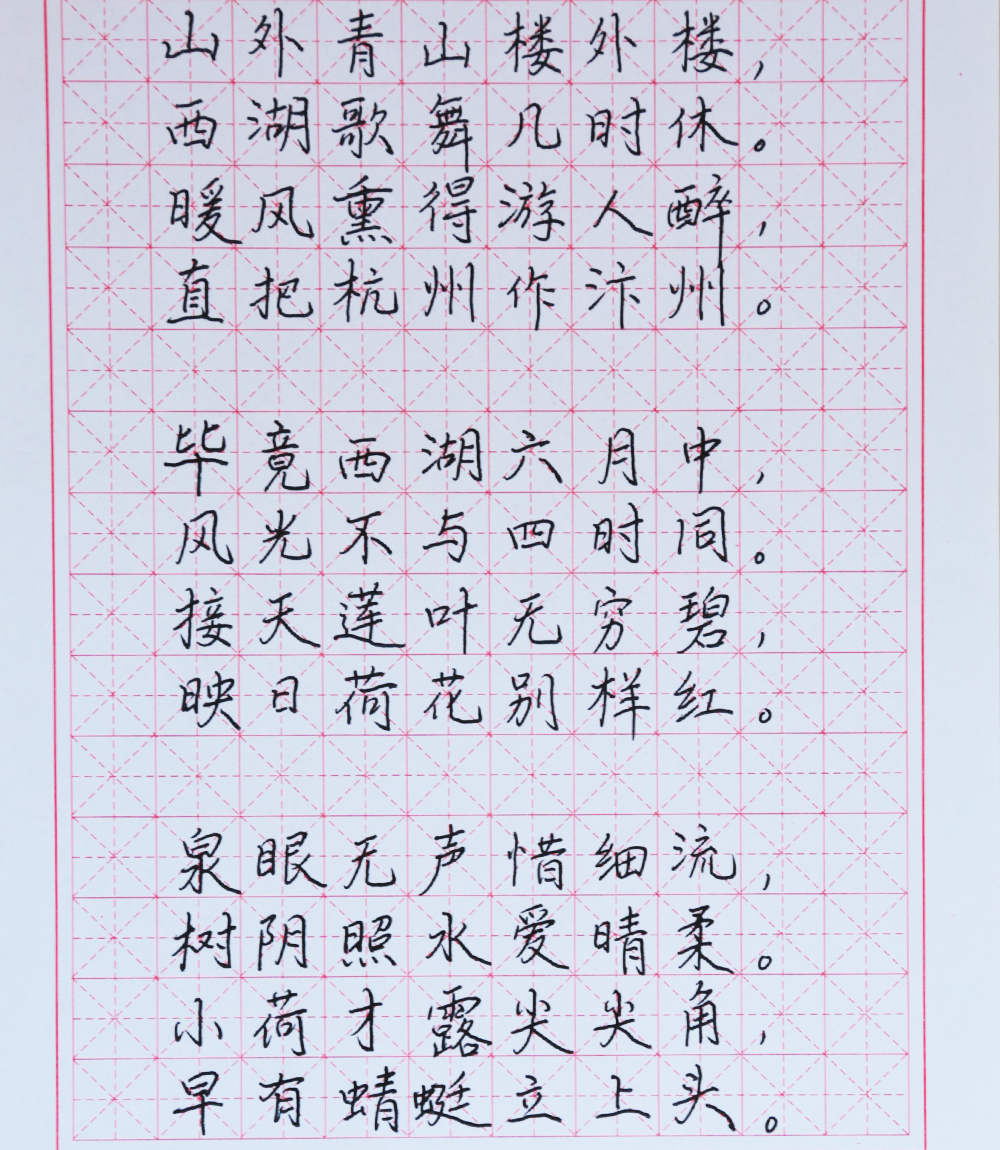 山外青山楼外楼，
西湖歌舞几时休。
暖风熏得游人醉，
直把杭州作汴州。
毕竟西湖六月中，
风光不与四时同。
接天莲叶无穷碧，
映日荷花别样红。
泉眼无声惜细流，
树阴照水爱晴柔。
小荷才露尖尖角，
早有蜻蜓立上头。